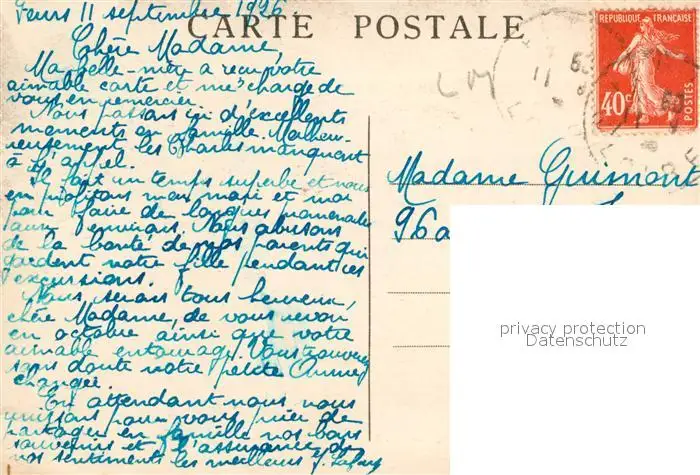 Feurs 11 septembre 1926
CARTE POSTALE
Chère Madame,
Ma belle-mère a reçu votre
aimable carte et me charge de
vous en remercier.
Nous passons ici d'excellents
moments en famille. Malheu-
reusement les Charles manquent
à l'appel.
Il fait un temps superbe et nous
en profitons mon mari et moi
pour faire de longues promenades
aux environs. Nous abusons
de la bonté de nos parents qui
gardent notre fille pendant ces
excursions.
Nous serons tous heureux,
chère Madame, de vous revoir
en octobre ainsi que votre
aimable entourage. Vous trouverez
sans doute notre petite Annie
changée.
En attendant nous nous
unissons pour vous prier de
partager en famille nos bons
souvenirs et l'assurance de
nos sentiments les meilleurs
REPUBLIQUE FRANÇAISE
40c
POSTES
Madame Guimont
96a
privacy protection
Datenschutz